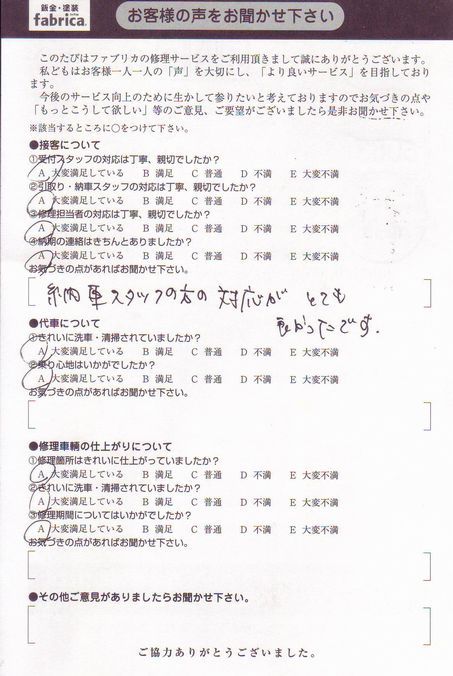 鈑金・塗装
fabrica.
お客様の声をお聞かせ下さい
このたびはファブリカの修理サービスをご利用頂きまして誠にありがとうございます。
私どもはお客様一人一人の「声」を大切にし、「より良いサービス」を目指しており
ます。
今後のサービス向上のために生かして参りたいと考えておりますのでお気づきの点や
「もっとこうして欲しい」等のご意見、ご要望がございましたら是非お聞かせ下さい。
※該当するところに○をつけて下さい。
●接客について
①受付スタッフの対応は丁寧、親切でしたか？
A 大変満足している B 満足 C 普通 D 不満 E 大変不満
②引取り・納車スタッフの対応は丁寧、親切でしたか？
A 大変満足している B 満足 C 普通 D 不満 E 大変不満
③修理担当者の対応は丁寧、親切でしたか？
A 大変満足している B 満足 C 普通 D 不満 E 大変不満
④納期の連絡はきちんとありましたか？
A 大変満足している B 満足 C 普通 D 不満 E 大変不満
お気づきの点があればお聞かせ下さい。
納車スタッフの方の対応がとても
良かったです.
●代車について
①きれいに洗車・清掃されていましたか？
A 大変満足している B 満足 C 普通 D 不満 E 大変不満
②乗り心地はいかがでしたか？
A 大変満足している B 満足 C 普通 D 不満 E 大変不満
お気づきの点があればお聞かせ下さい。
●修理車輌の仕上がりについて
①修理箇所はきれいに仕上がっていましたか？
A 大変満足している B 満足 C 普通 D 不満 E 大変不満
②きれいに洗車・清掃されていましたか？
A 大変満足している B 満足 C 普通 D 不満 E 大変不満
③修理期間についてはいかがでしたか？
A 大変満足している B 満足 C 普通 D 不満 E 大変不満
お気づきの点があればお聞かせ下さい。
●その他ご意見がありましたらお聞かせ下さい。
ご協力ありがとうございました。